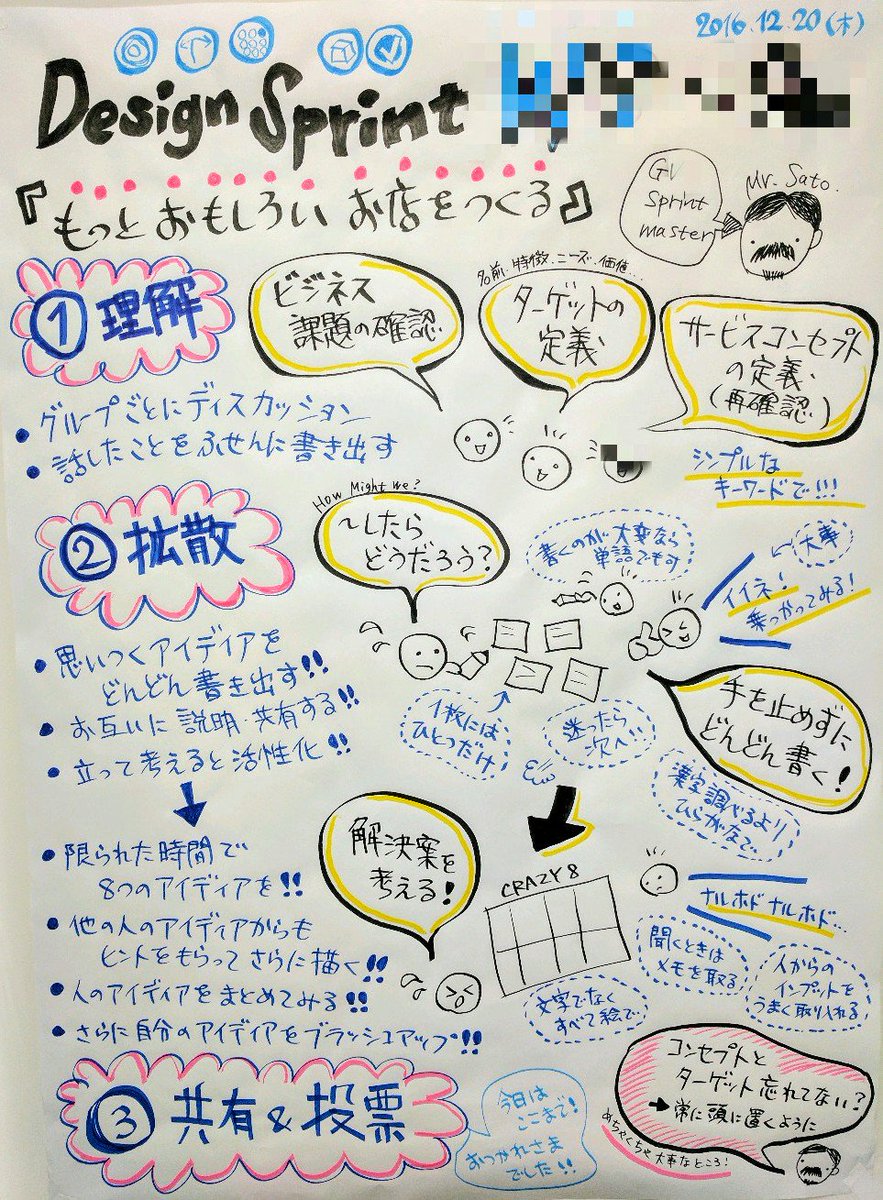 2016.12.20(木)
Design Sprint
『もっとおもしろい お店をつくる』
GV
Sprint
master
Mr. Sato.
① 理解
ビジネス
課題の確認
名前・特徴・ニーズ・価値...
ターゲットの
定義
サービスコンセプト
の定義
(再確認)
• グループごとにディスカッション
• 話したことをふせんに書き出す
シンプルな
キーワードで!!!
② 拡散
How Might We?
〜したら
どうだろう?
書くのが大変なら
単語でもOK
大事
イイネ!
乗っかってみる!
• 思いつくアイディアを
どんどん書き出す!!
• お互いに説明・共有する!!
• 立って考えると活性化!!
1枚には
ひとつだけ
迷ったら
次へ...
手を止めずに
どんどん書く!
漢字調べるより
ひらがなで
• 限られた時間で
8つのアイディアを!!
• 他の人のアイディアからも
ヒントをもらってさらに描く!!
• 人のアイディアをまとめてみる!!
• さらに自分のアイディアをブラッシュアップ!!
解決案を
考える!
CRAZY 8
文字でなく
すべて絵で
ナルホド ナルホド...
聞くときは
メモを取る
人からの
インプットを
うまく取り入れる
③ 共有&投票
今日は
ここまで!
おつかれさま
でした!!
コンセプトと
ターゲット忘れてない?
→常に頭に置くように
めちゃくちゃ大事なところ!